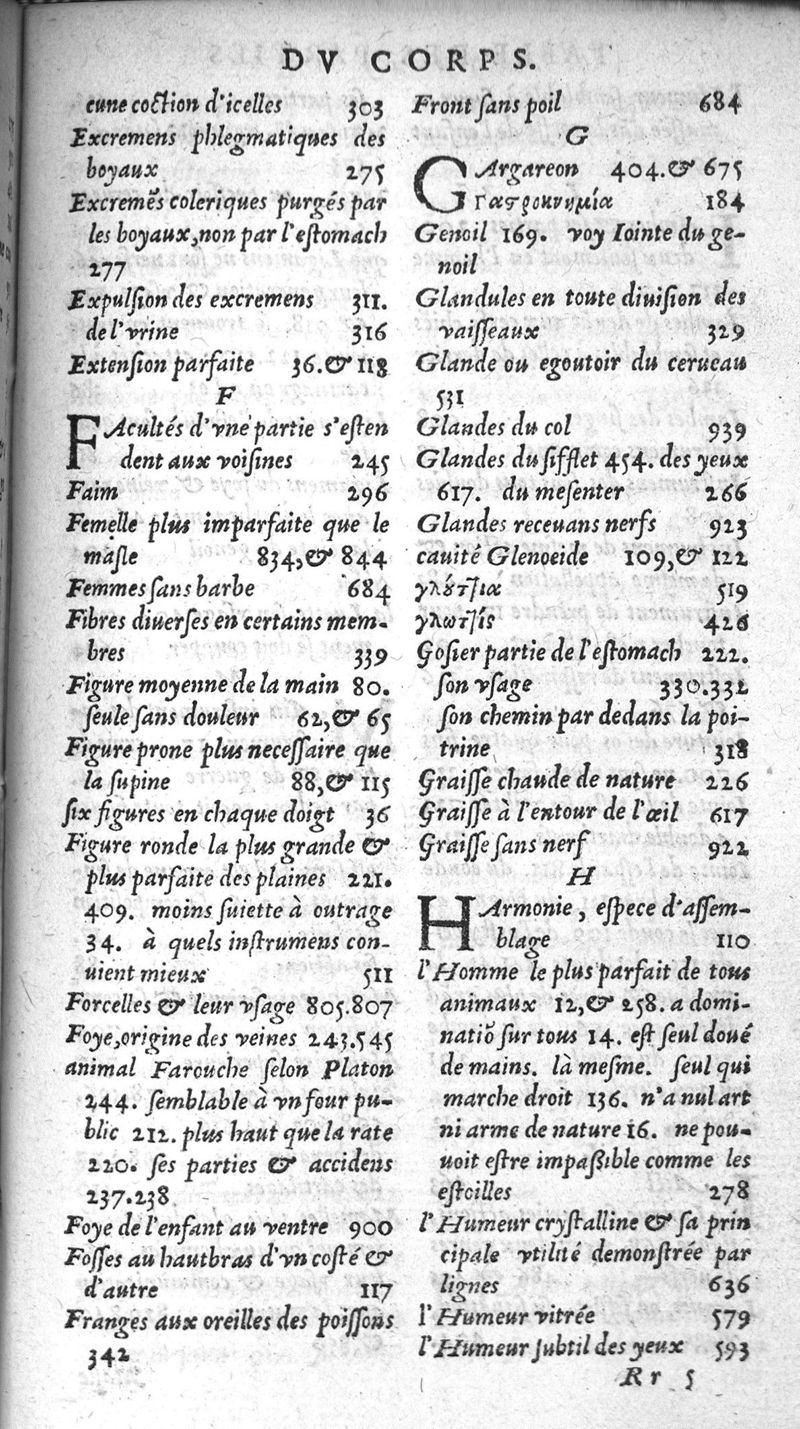 DV CORPS.
cune coction d'icelles 303
Excremens phlegmatiques des
boyaux 275
Excremẽs coleriques purgés par
les boyaux, non par l'eſtomach
277
Expulſion des excremens 311.
de l'vrine 316
Extenſion parfaite 36.& 118
F
FAcultés d'vne partie s'eſten
dent aux voiſines 245
Faim 296
Femelle plus imparfaite que le
maſle 834,& 844
Femmes ſans barbe 684
Fibres diuerſes en certains mem-
bres 339
Figure moyenne de la main 80.
ſeule ſans douleur 62,& 65
Figure prone plus neceſſaire que
la ſupine 88,& 115
ſix figures en chaque doigt 36
Figure ronde la plus grande &
plus parfaite des plaines 221.
409. moins ſuiette à outrage
34. à quels inſtrumens con-
uient mieux 511
Forcelles & leur vſage 805.807
Foye, origine des veines 243.545
animal Farouche ſelon Platon
244. ſemblable à vn four pu-
blic 212. plus haut que la rate
220. ſes parties & accidens
237.238
Foye de l'enfant au ventre 900
Foſſes au hautbras d'vn coſté &
d'autre 117
Franges aux oreilles des poiſſons
342
Front ſans poil 684
G
GArgareon 404.& 675
Γαστροκνημία 184
Genoil 169. voy Iointe du ge-
noil
Glandules en toute diuiſion des
vaiſſeaux 329
Glande ou egoutoir du cerueau
531
Glandes du col 939
Glandes du ſifflet 454. des yeux
617. du meſenter 266
Glandes receuans nerfs 923
cauité Glenoeide 109,& 122
γλούτια 519
γλωτίς 426
Goſier partie de l'eſtomach 222.
ſon vſage 330.332
ſon chemin par dedans la poi-
trine 318
Graiſſe chaude de nature 226
Graiſſe à l'entour de l'œil 617
Graiſſe ſans nerf 922
H
HArmonie, eſpece d'aſſem-
blage 110
l'Homme le plus parfait de tous
animaux 12,& 258. a domi-
natiõ ſur tous 14. eſt ſeul doué
de mains. là meſme. ſeul qui
marche droit 136. n'a nul art
ni arme de nature 16. ne pou-
uoit eſtre impaſſible comme les
eſtoilles 278
l'Humeur cryſtalline & ſa prin
cipale vtilité demonſtrée par
lignes 636
l'Humeur vitrée 579
l'Humeur ſubtil des yeux 593
Rr 5